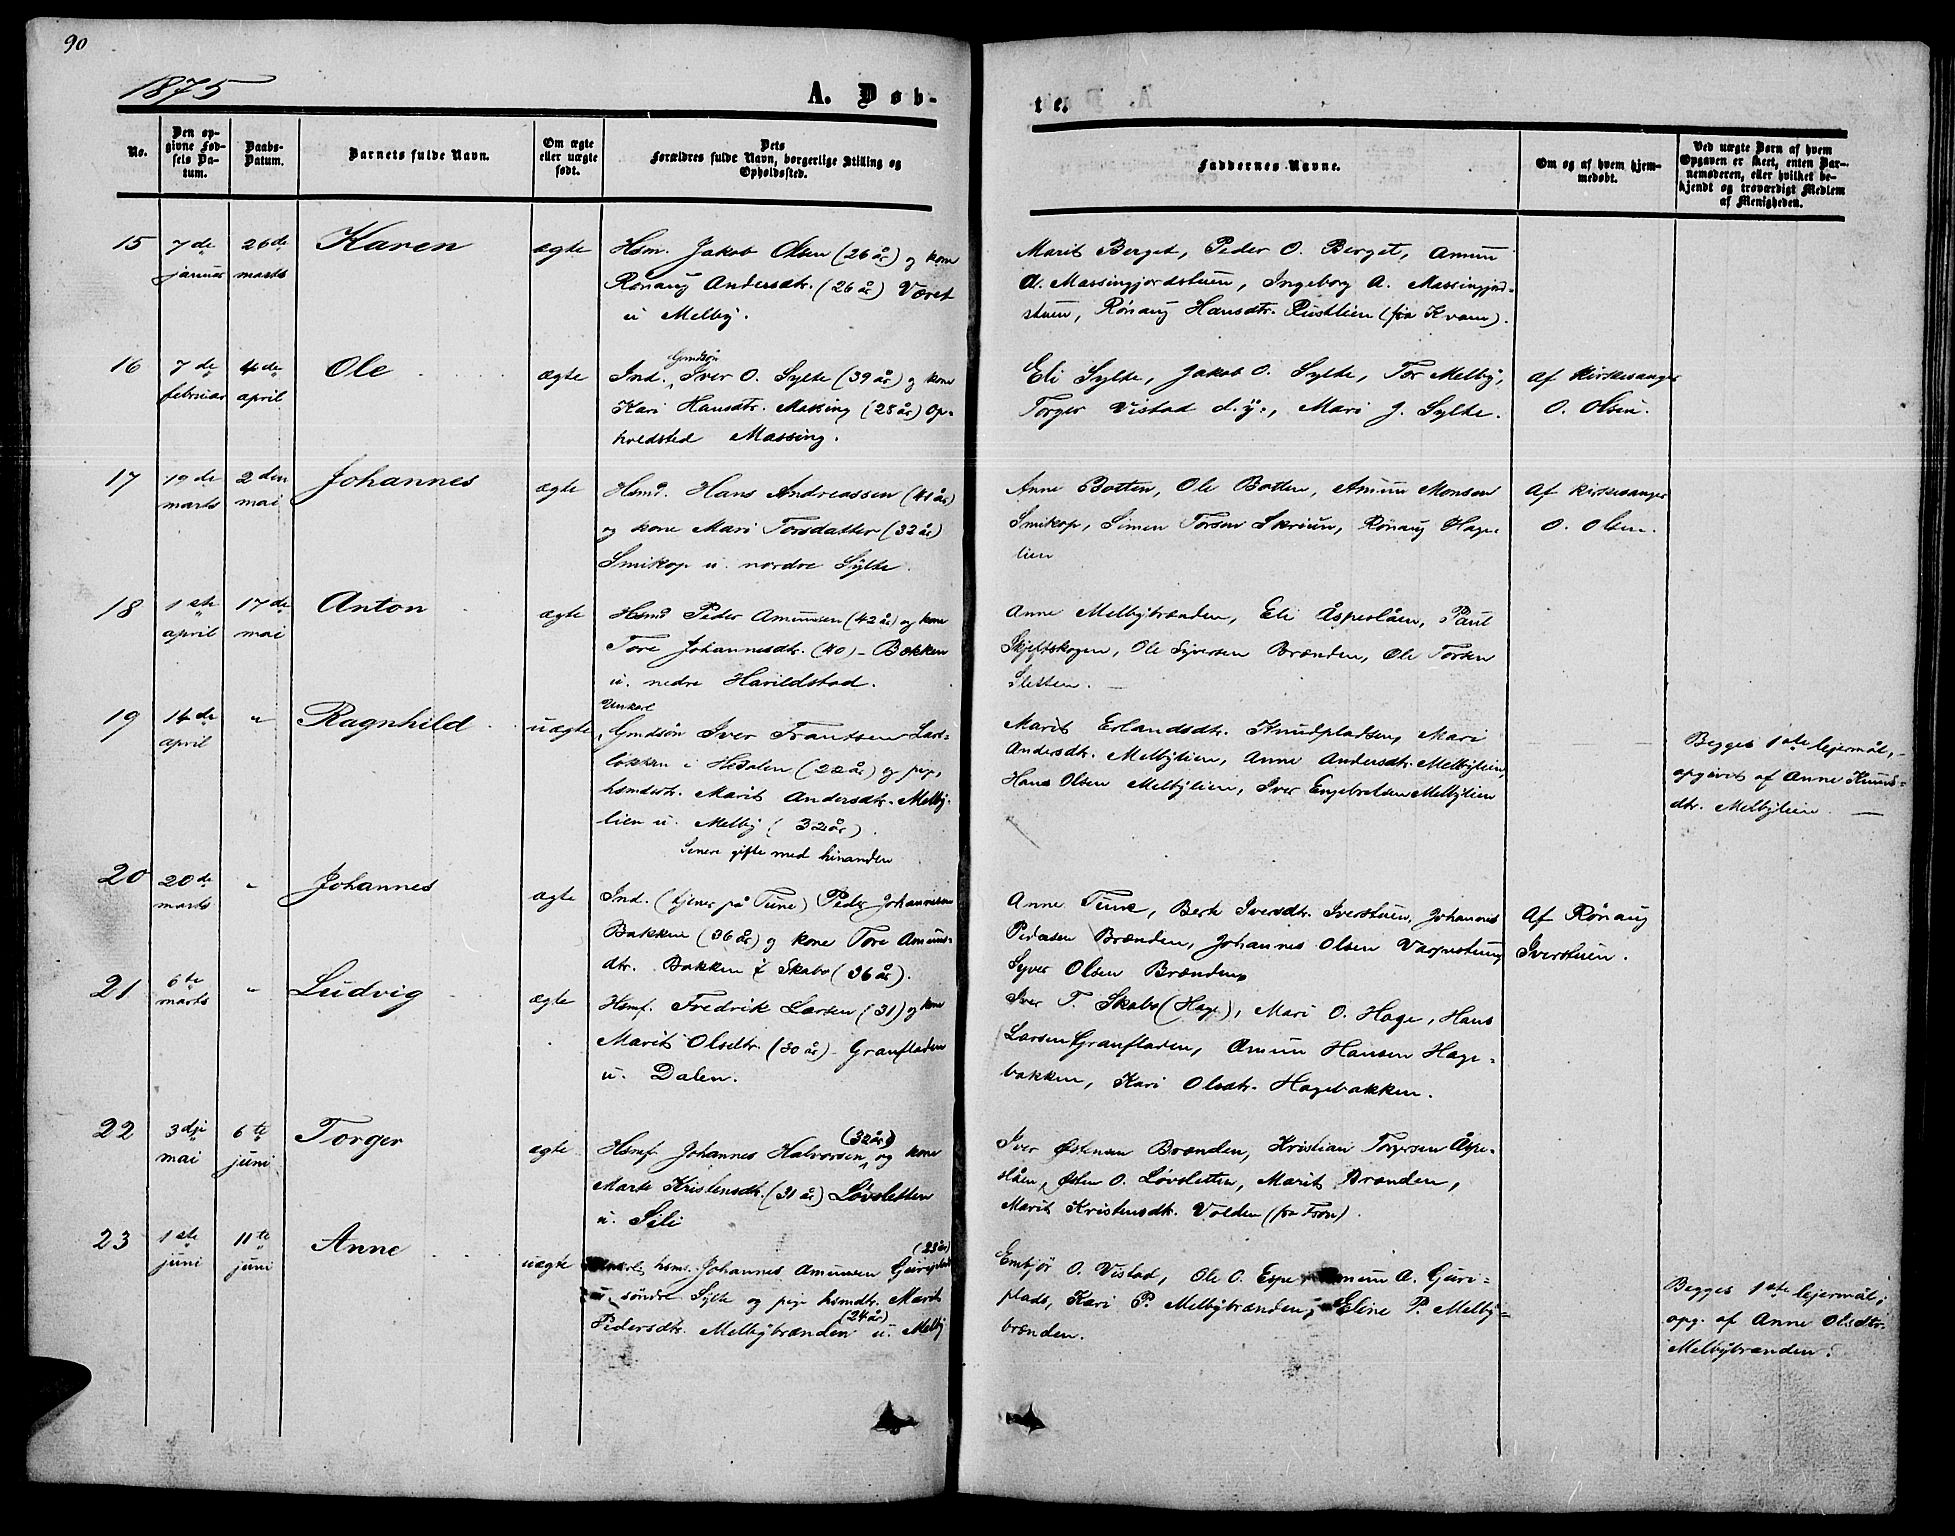 90
1875
A. Døb-
te.
No.
Den op-
givne Fød-
sels Da-
tum.
Daabs-
Datum.
Barnets fulde Navn.
Om ægte
eller uægte
født.
Dets
Forældres fulde Navn, borgerlige Stilling og
Opholdssted.
Faddernes Navne.
Om og af hvem hjem-
medøbt.
Ved uægte Børn af hvem
Opgaven er skeet, enten Bar-
nemoderen, eller hvilket be-
kjendt og troværdigt Medlem
af Menigheden.
15 7de januar 26de marts Karen ægte
Hsm. Jakob Olsen (26 år) og kone
Rönaug Andersdtr. (26 år) Været
u Melby.
Marit Berget, Peder O. Berget, Amun
A. Massingjordstuen, Ingeborg A. Massingjord-
stuen, Rønaug Hansdtr. Rustlien (fra Kvam).
16 7de februar 4de april Ole ægte
Grndsön
Ind., Iver O. Sylte (39 år) og kone
Kari Hansdtr. Massing (28 år) Op-
holdsted Massing.
Eli Sylte, Jakob O. Sylte, Tor Melby,
Torger Vistad d. y., Mari J. Sylte.
af kirkesanger
O. Olsen.
17 19de marts 2den mai Johannes ægte
Hsmd. Hans Andreassen (41 år)
og kone Mari Torsdatter (32 år)
Smikop u. nordre Sylte.
Anne Botten, Ole Botten, Amun Monsen
Smikop, Simen Torsen Skröen, Rönaug Hage-
lien
af kirkesanger
O. Olsen.
18 1ste april 17de mai Anton ægte
Hsmd Peder Amunsen (42 år) og kone
Tore Johannesdtr. (40) - Bakken
u. nedre Harildstad.
Anne Melbybrænden, Eli Åspeslåen, Paul
Skjeftskogen, Ole Syversen Brænden, Ole Torsen
Sletten.
19 14de april " Ragnhild uægte
Unkarl
Grndsön Iver Frantsen Lars-
løkken i Hedalen (22 år) og pige,
hsmdsdtr. Marit Andersdtr. Melby-
lien u. Melby (32 år).
Senere gifte med hinanden
Marit Erlandsdtr. Knudpladsen, Mari
Andersdtr. Melbylien, Anne Andersdtr. Melbylien,
Hans Olsen Melbylien, Iver Engebretsen Melbylien
Begges 1ste lejermål,
opgivet af Anne Knuds-
dtr. Melbylien.
20 20de marts " Johannes ægte
Ind. (tjener på Tune) Peder Johannesen
Bakken (36 år) og kone Tore Amuns-
dtr. Bakken i Skabo (36 år).
Anne Tune, Berte Iversdtr. Iverstuen, Johannes
Pedersen Brænden, Johannes Olsen
Syver Olsen Brænden
Af Rönaug
Iverstuen.
21 6te marts " Ludvig ægte
Hsmf. Fredrik Larsen (31) og kone
Marit Olsdtr. (30 år) - Granfladen
u. Dalen.
Iver T. Skabo (Hage), Mari O. Hage, Hans
Larsen Granfladen, Amun Hansen Hage-
bakken, Kari Olsdtr. Hagebakken.
22 3dje mai 6te juni Torger ægte
(32 år)
Hsmf. Johannes Halvorsen og kone
Marte Kristensdtr. (31 år) Løvsletten
u. Sili
Iver Østensen Brænden, Kristian Torgersen Åspe-
slåen, Østen O. Løvsletten, Marit Brænden,
Marit Kristensdtr. Volden (fra Fron).
23 1ste juni 11te juni Anne uægte
(23 år)
hsm. Johannes Amunsen Guriplads
u. søndre Sylte og pige hsmdtr. Marit
(24 år)
Pedersdtr. Melbybrænden u. Melby
Embjör O. Vistad, Ole O. Espe, Amun A. Guri-
plads, Kari P. Melbybrænden, Eline P. Melby-
brænden.
Begges 1ste lejermål;
opg. af Anne Olsdtr.
Melbybrænden.